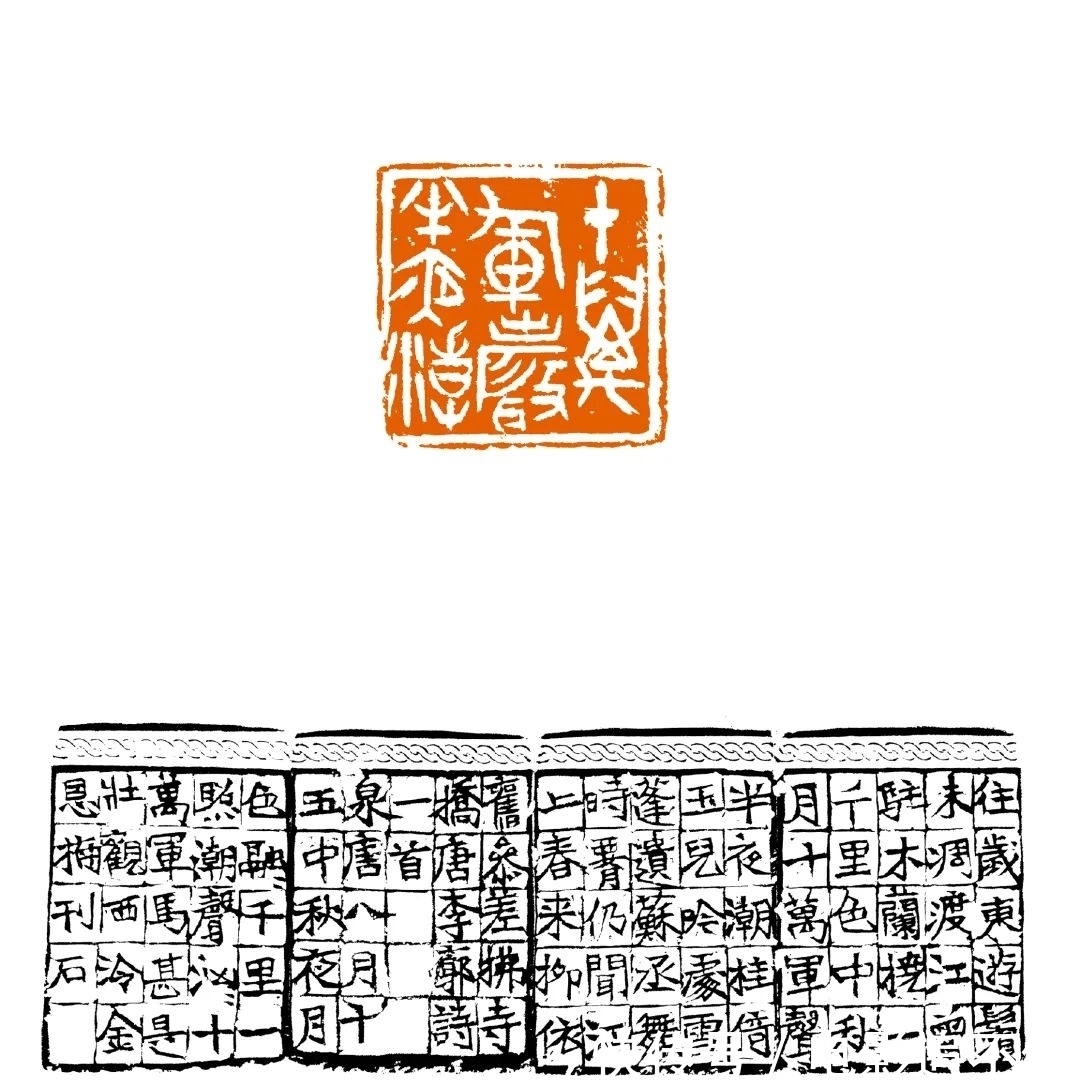 十萬
軍聲
半夜潮
往歲東遊鬢
未凋渡江曾
駐木蘭橈一
千里色中秋
月十萬軍聲
半夜潮桂倚
玉兒吟處雪
蓬遺蘇丞舞
時腰仍聞江
上春来柳依
舊參差拂寺
橋唐李廓詩
一首
泉唐八月十
五中秋夜月
色融千里一
照潮聲汹十
萬軍馬甚是
壯觀西泠金
恩楠刊石